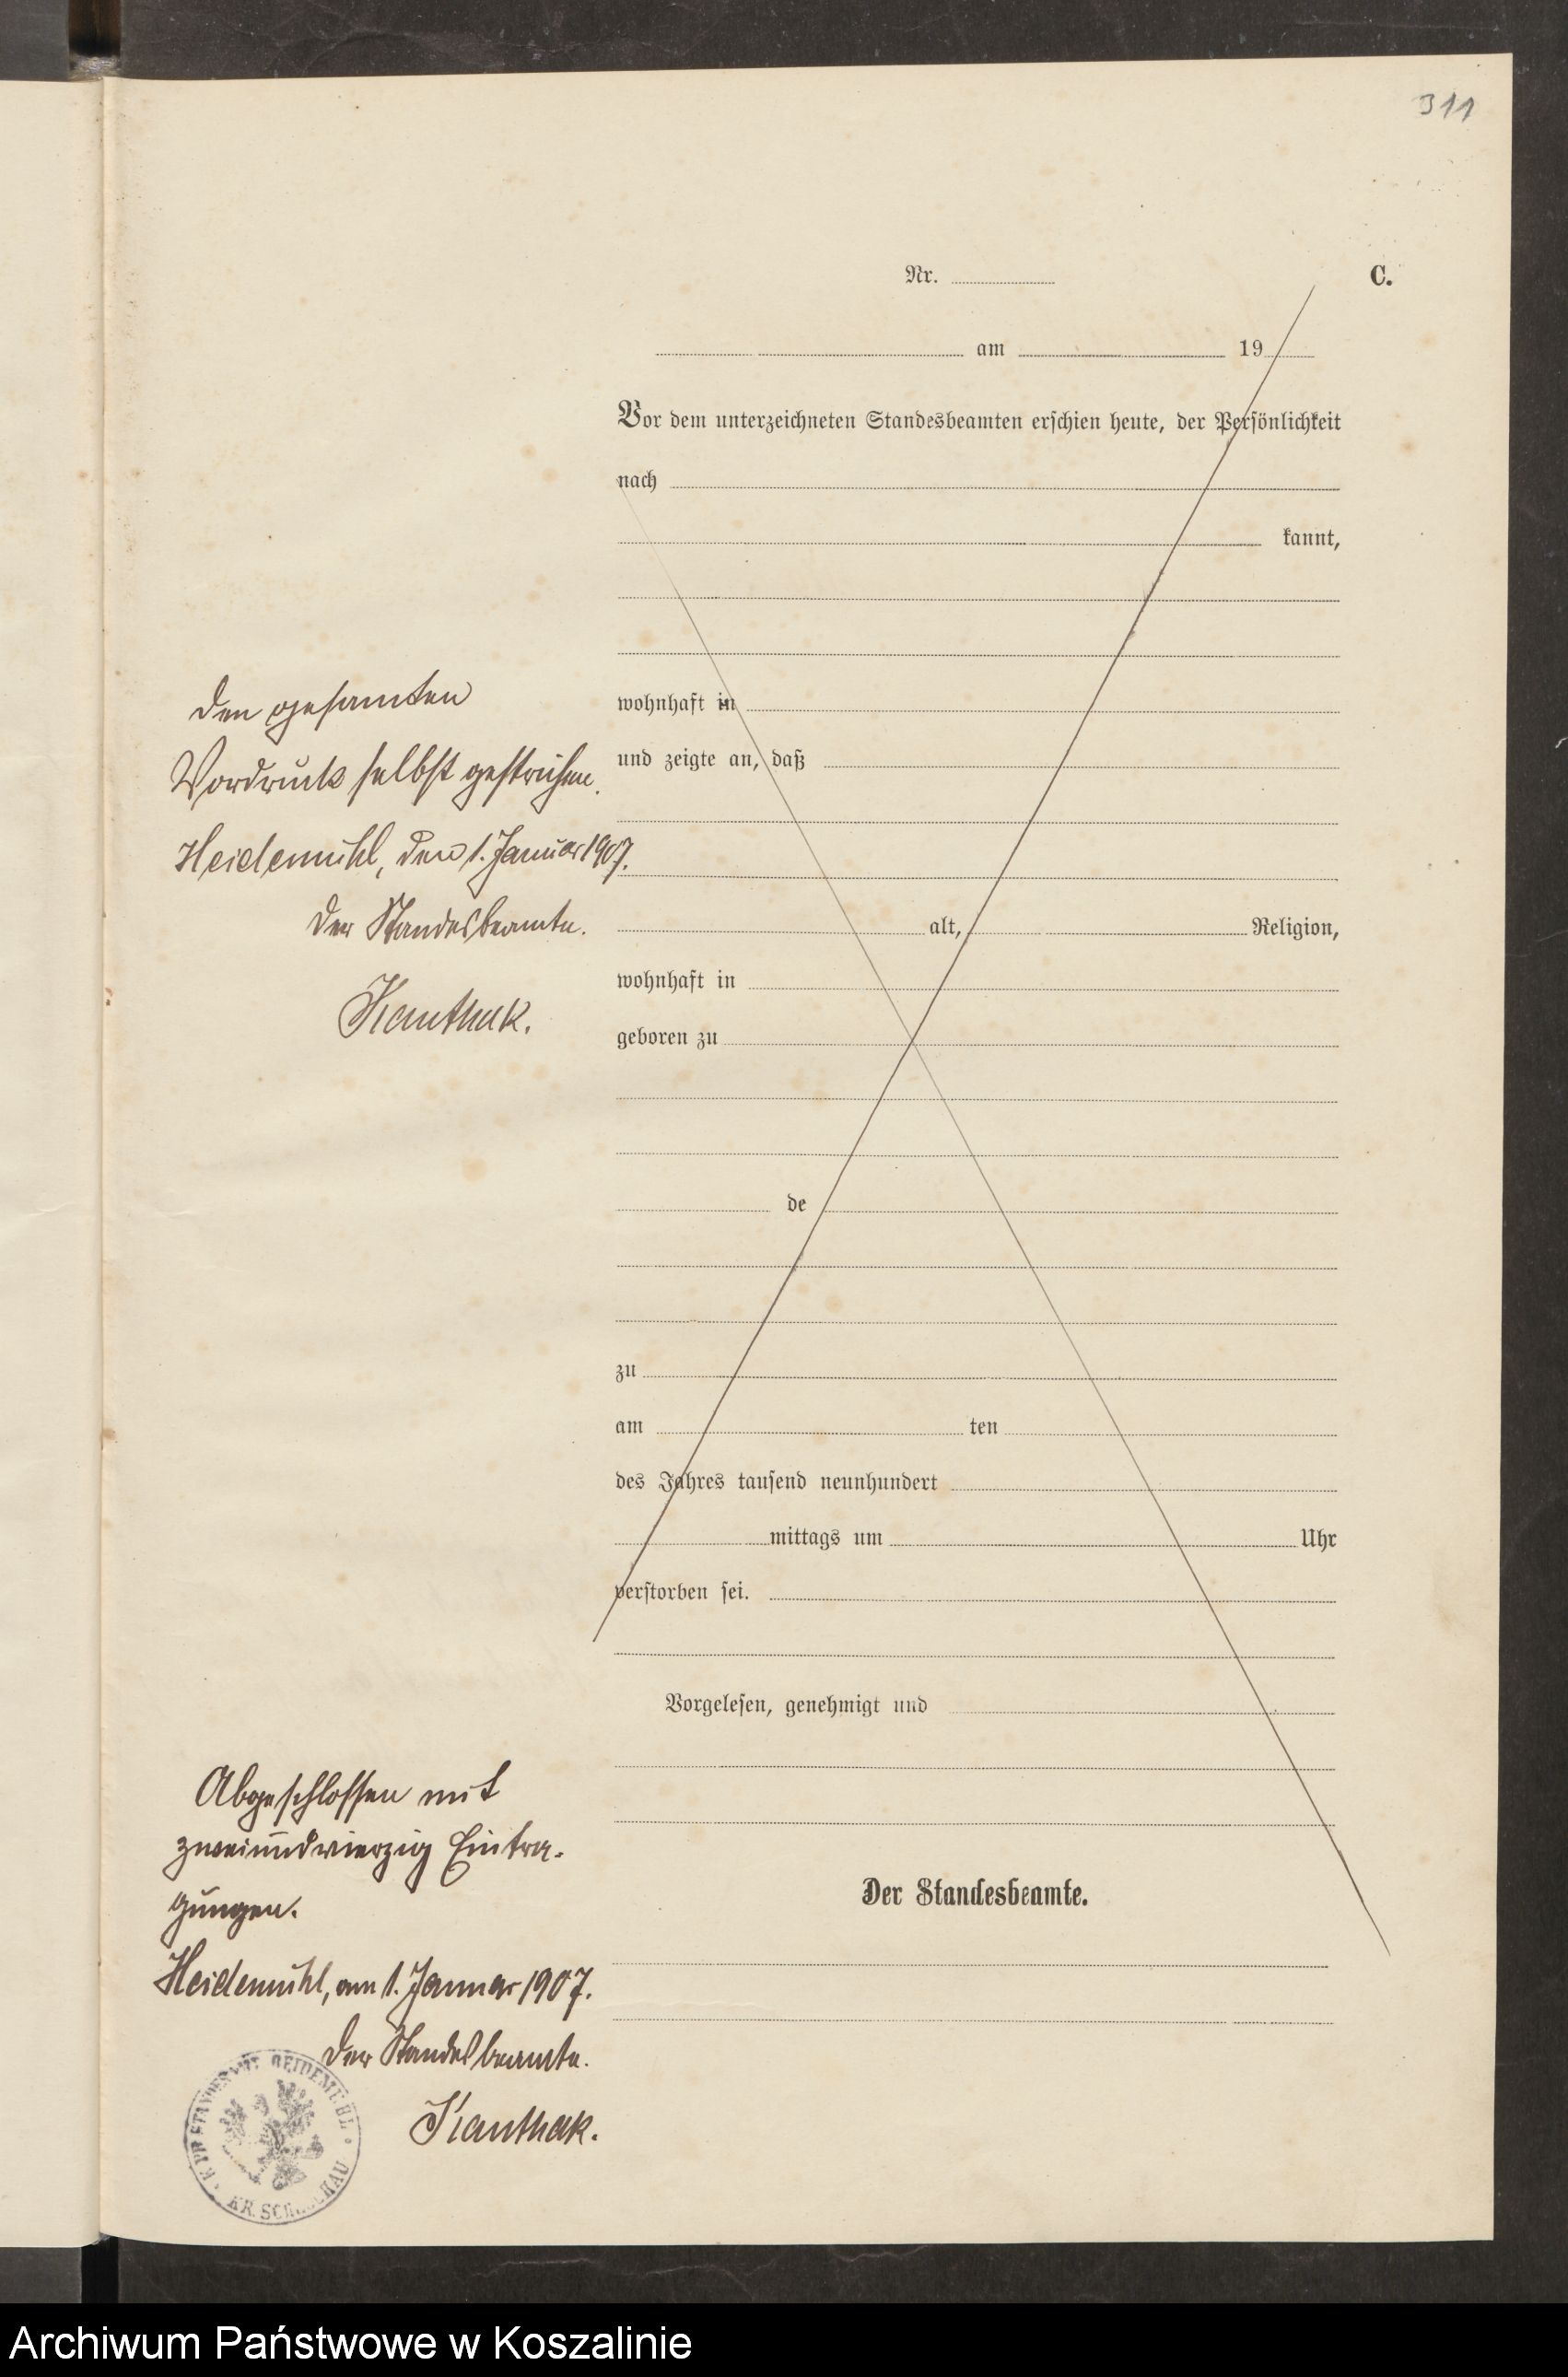 311
Nr.
C.
am 19
Vor dem unterzeichneten Standesbeamten erschien heute, der Persönlichkeit
nach
kannt,
wohnhaft in
und zeigte an, daß
alt, Religion,
wohnhaft in
geboren zu
de
zu
am ten
des Jahres tausend neunhundert
mittags um Uhr
verstorben sei.
Vorgelesen, genehmigt und
Der Standesbeamte.
Den gesamten
Vordruck selbst gestrichen.
Heidemühl, den 1. Januar 1907.
Der Standesbeamte.
Kanthak.
Abgeschlossen mit
zweiundvierzig Eintra-
gungen.
Heidemühl, am 1. Januar 1907.
Der Standesbeamte.
Kanthak.
HEIDEMÜHL
KR.
Archiwum Państwowe w Koszalinie